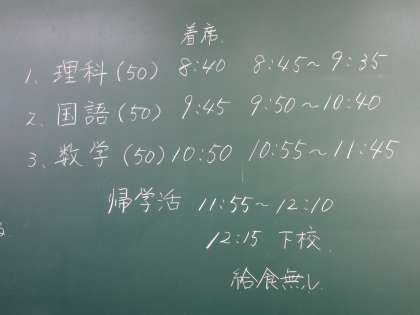 着席.
1. 理科(50) 8:40 8:45～9:35
2. 国語(50) 9:45 9:50～10:40
3. 数学(50) 10:50 10:55～11:45
帰学活 11:55～12:10
12:15 下校.
給食無し